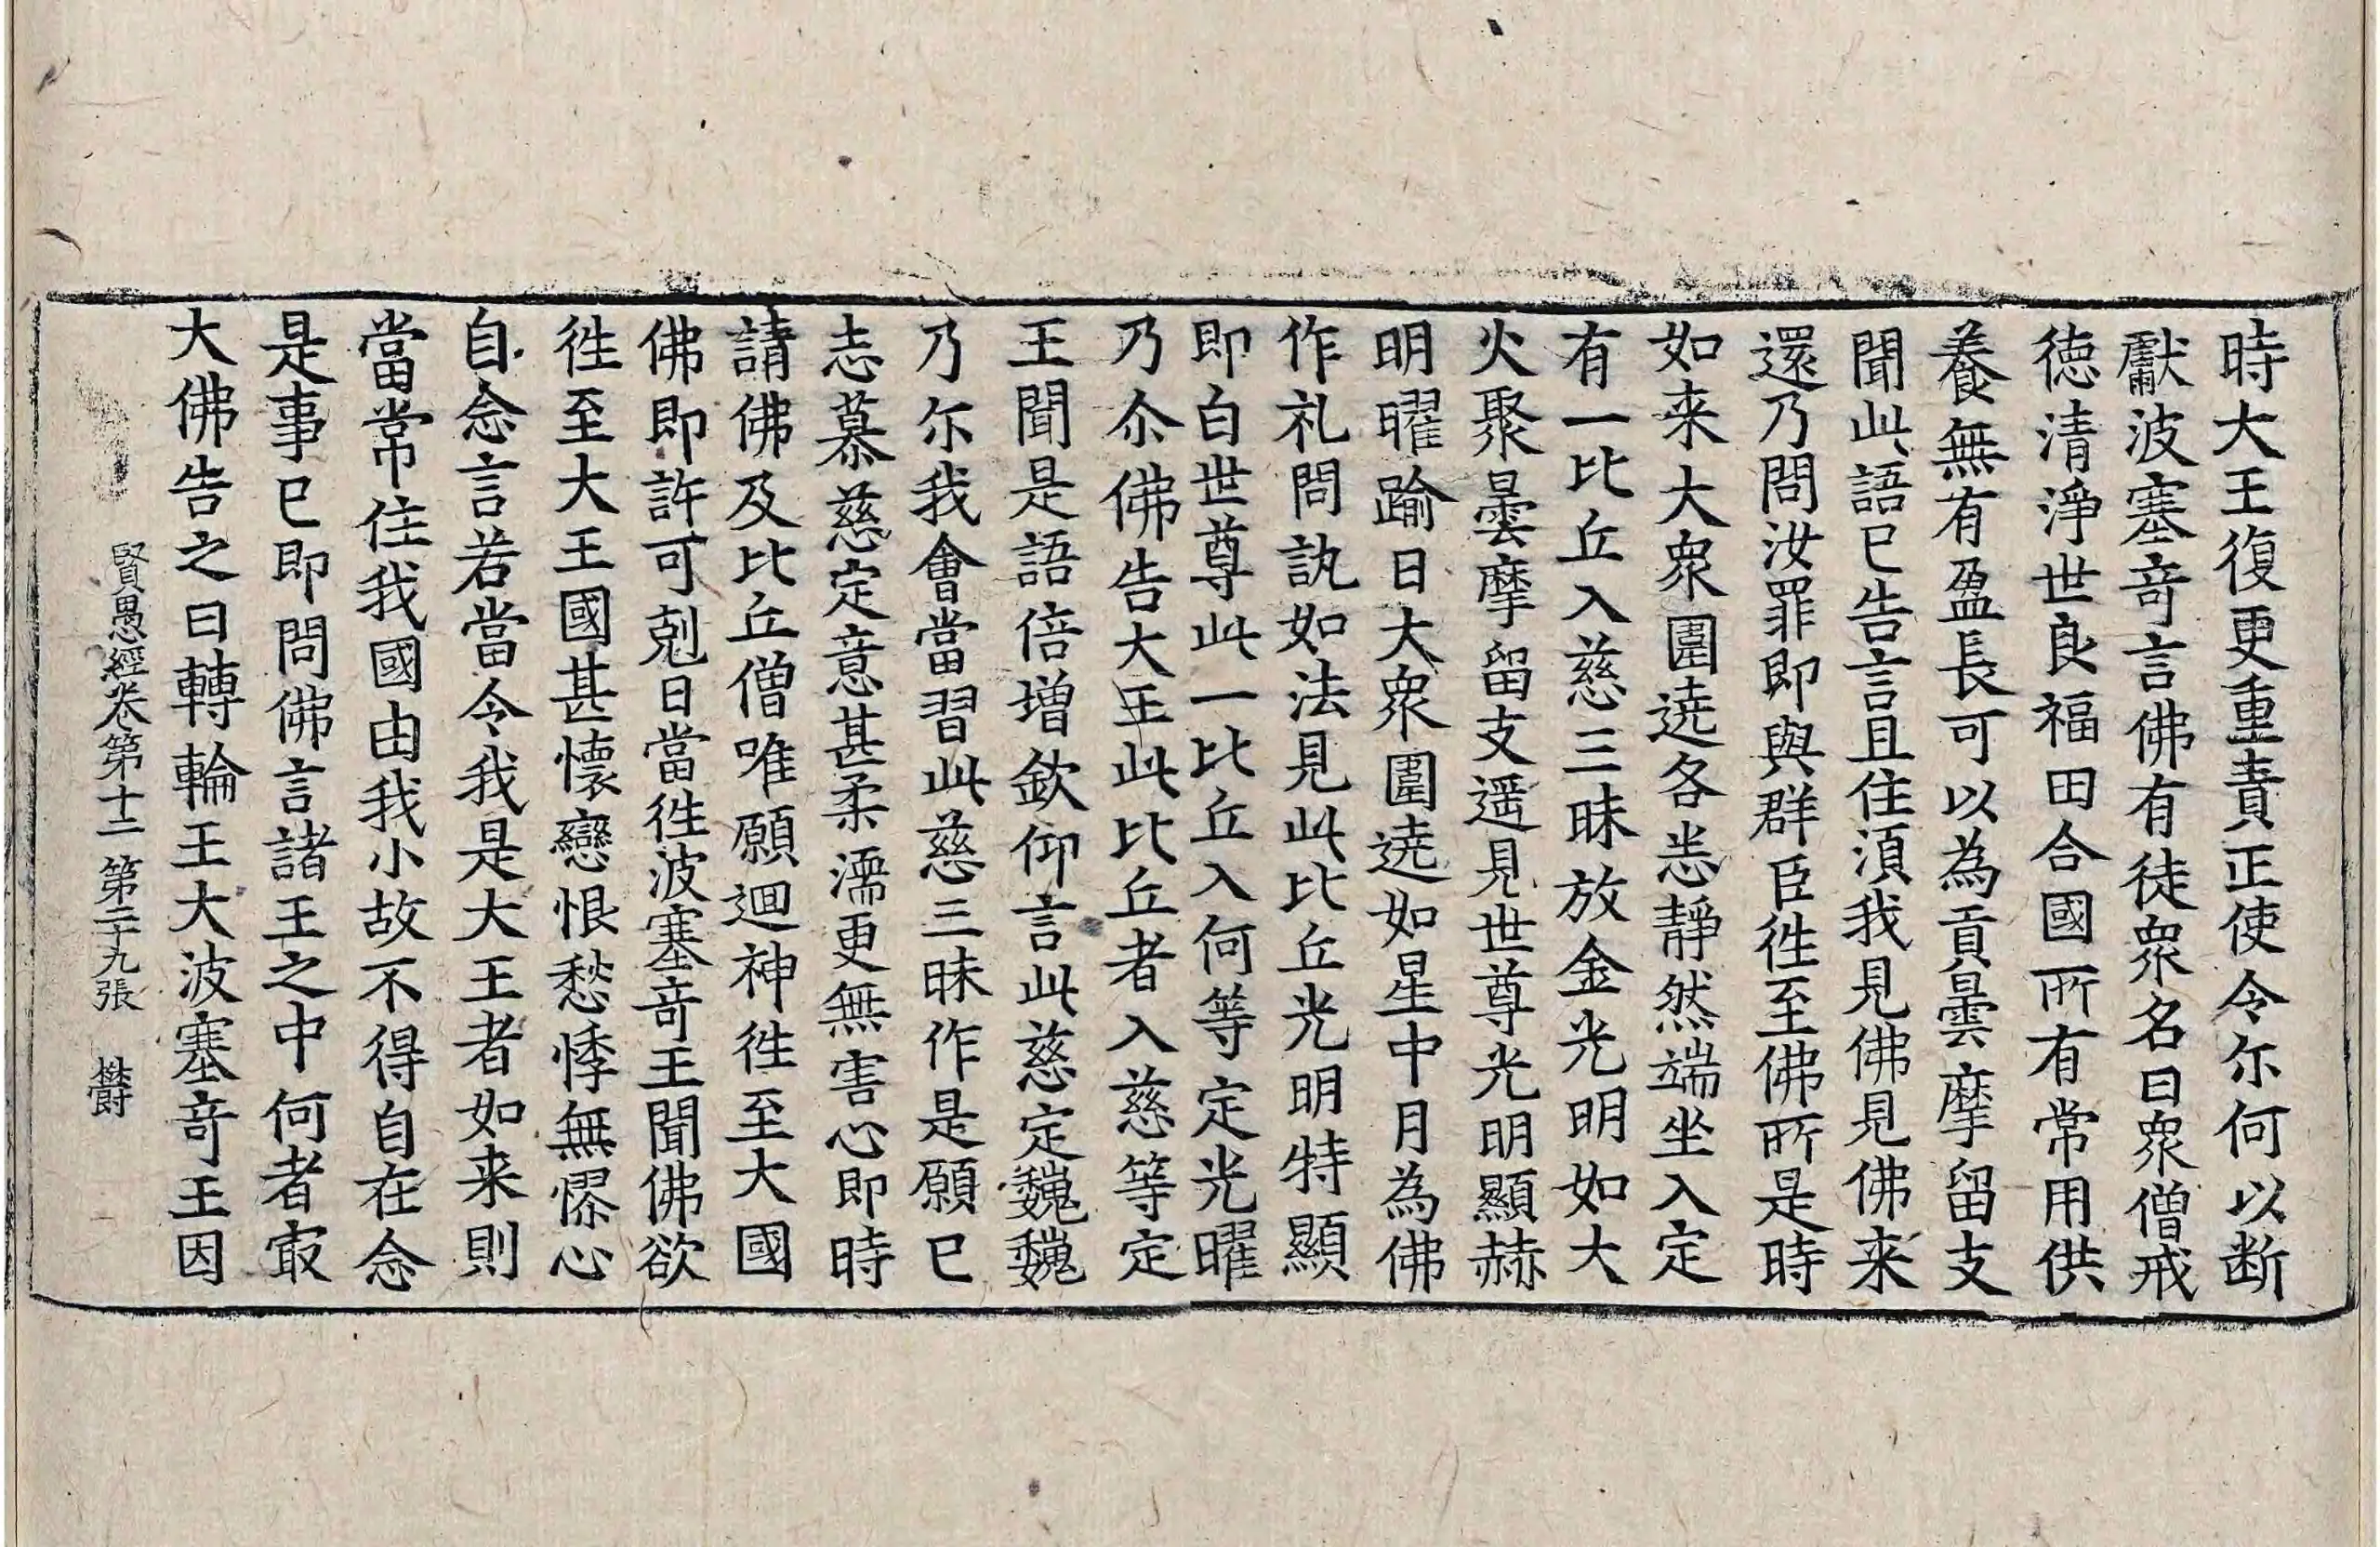 時大王復更重責正使令尓何以断
獻波塞奇言佛有徒衆名曰衆僧戒
徳清淨世良福田合國所有常用供
養無有盈長可以為貢曇摩留支
聞此語已告言且住湏我見佛見佛来
還乃問汝罪即與群臣徃至佛所是時
如来大衆圍遶各恙靜然端坐入定
有一比丘入慈三昧放金光明如大
火聚曇摩留支遥見世尊光明顯赫
明曜踰日大衆圍遶如星中月為佛
作礼問訊如法見此比丘光明特顯
即白世尊此一比丘入何等定光曜
乃尒佛告大王此比丘者入慈等定
王聞是語倍增欽仰言此慈定巍巍
乃尓我會當習此慈三昧作是願已
志慕慈定意甚柔濡更無害心即時
請佛及比丘僧唯願迴神徃至大國
佛即許可剋日當徃波塞竒王聞佛欲
徃至大王國甚懷戀恨愁悸無憀心
自念言若當令我是大王者如来則
當常住我國由我小故不得自在念
是事已即問佛言諸王之中何者㝡
大佛告之曰轉輪王大波塞竒王因
賢愚經卷第十二 第二十九張 欝